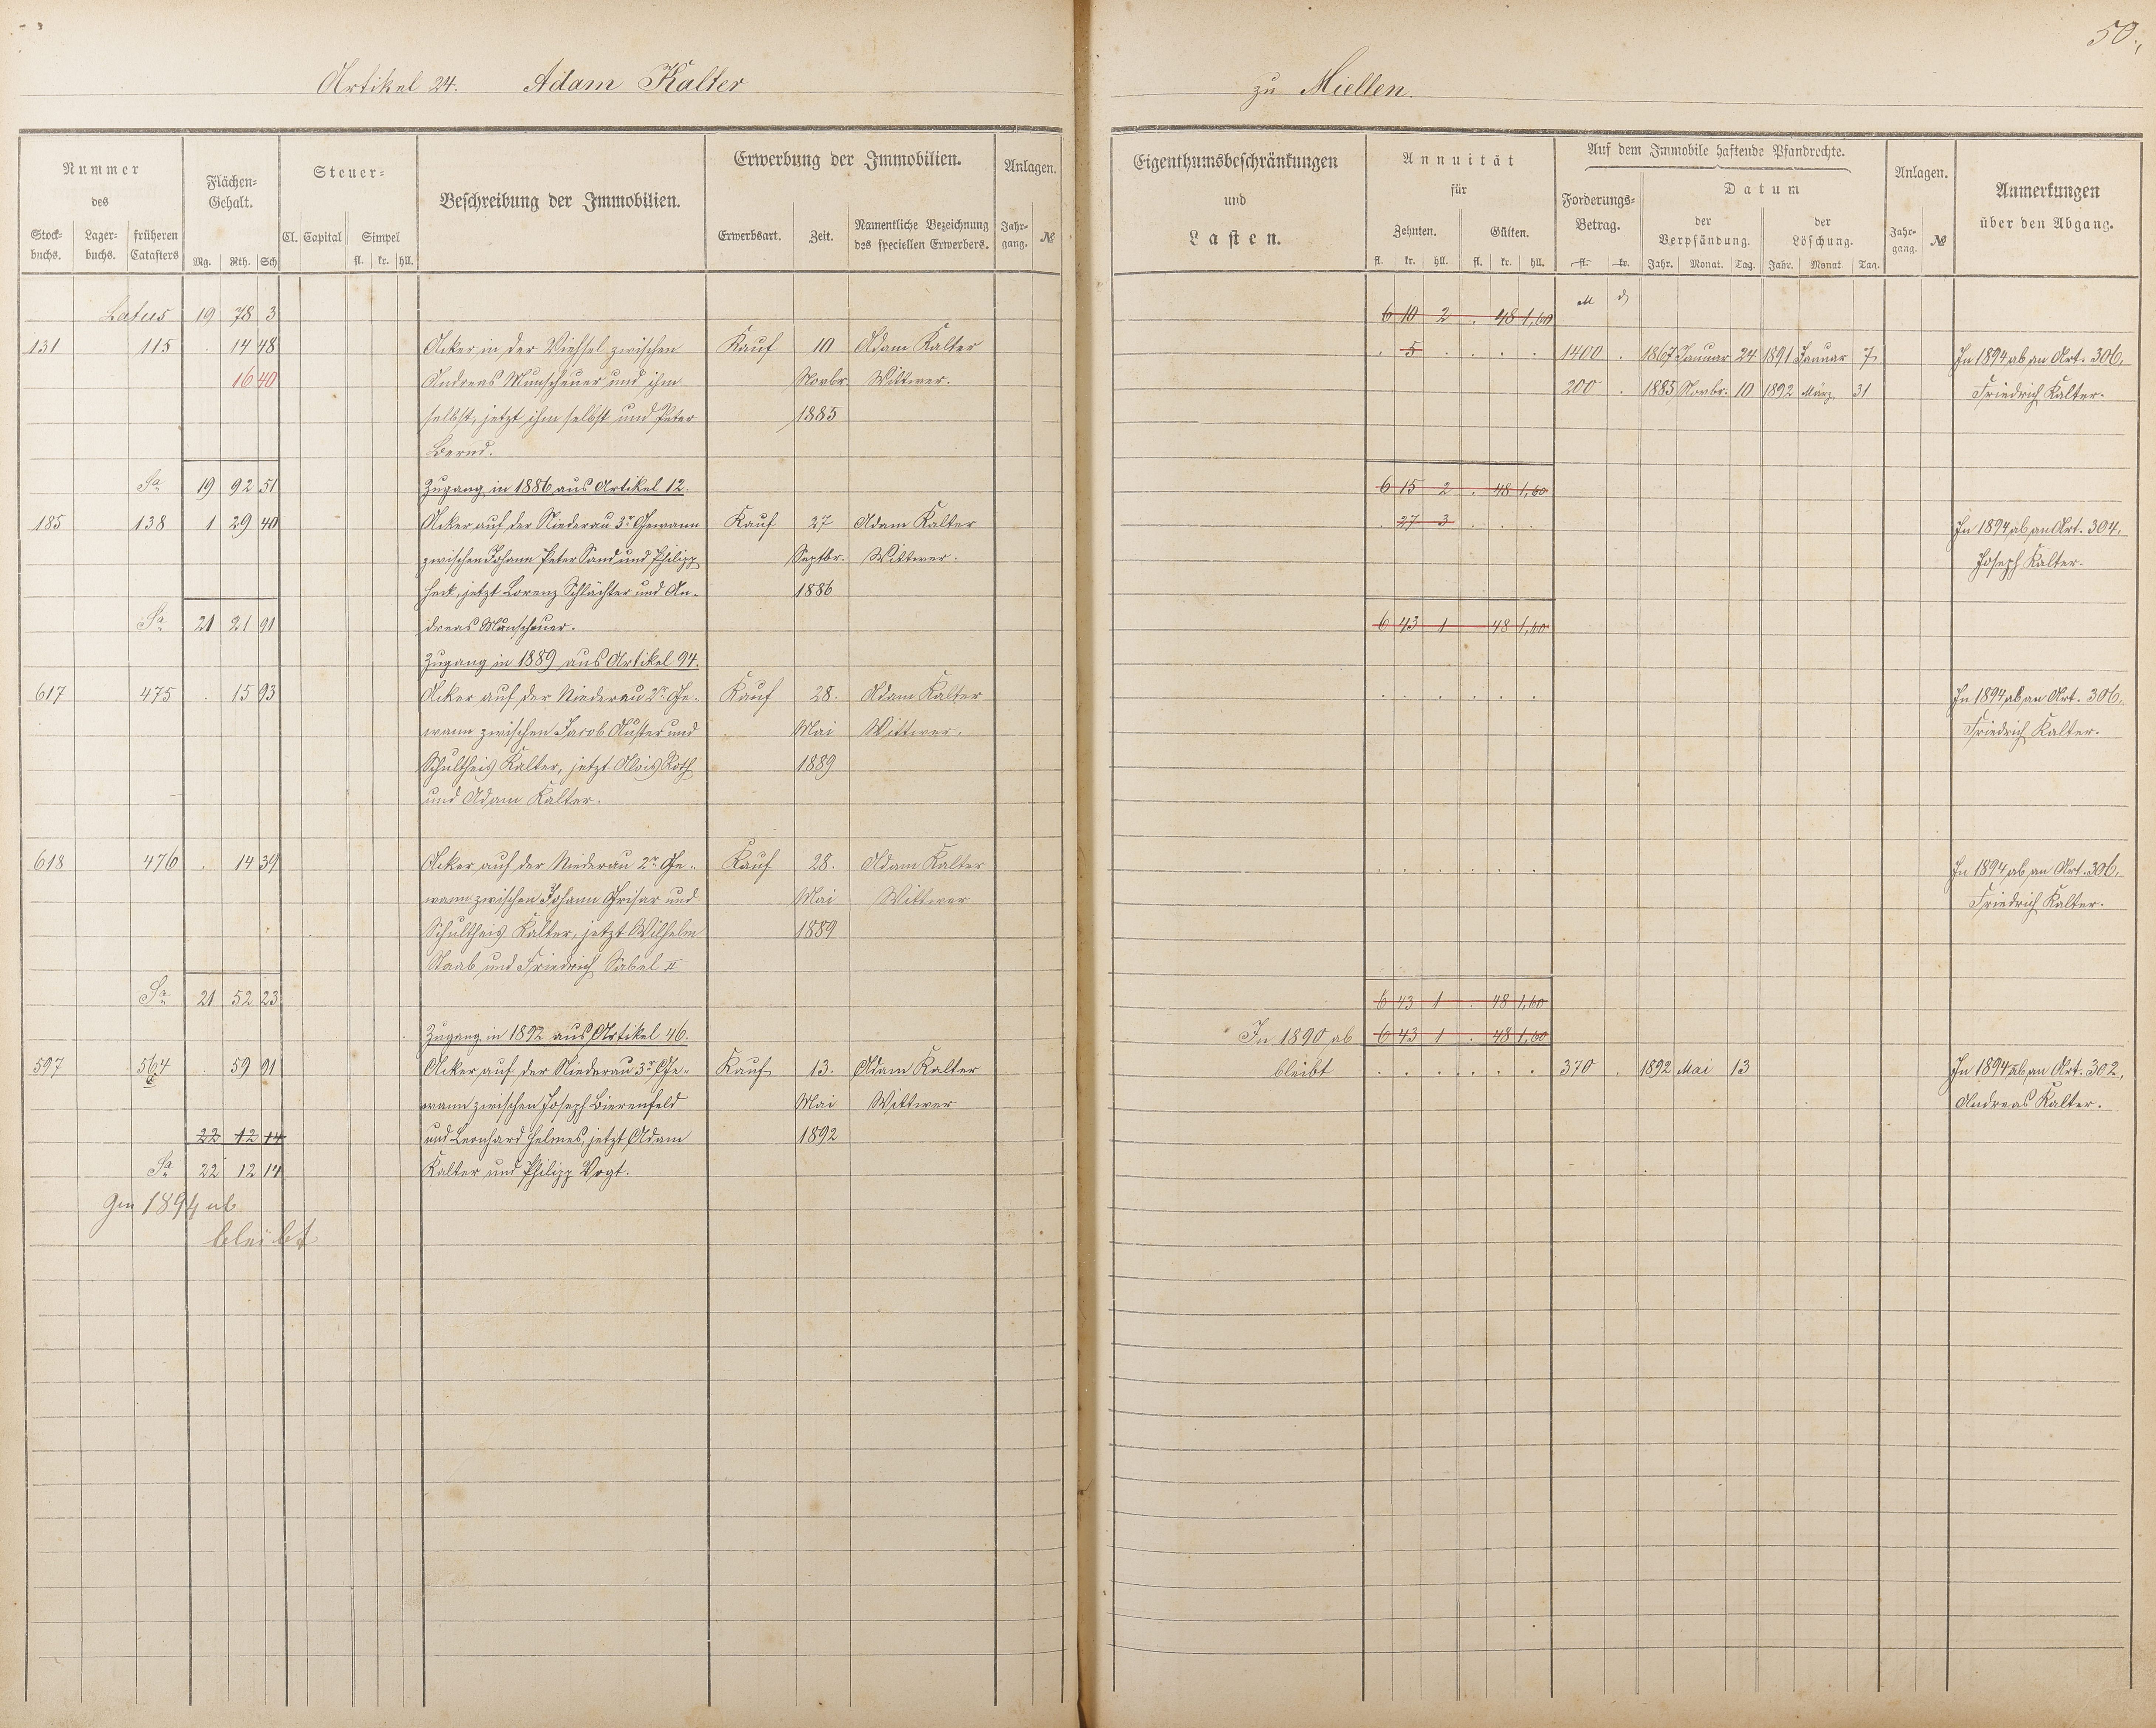 50.
Artikel 24. Adam Kalter zu Miellen.
Nummer des
Flächen-Gehalt.
Steuer-
Beschreibung der Immobilien.
Erwerbung der Immobilien.
Anlagen.
Stockbuchs. Lagerbuchs. früheren Catasters
Mg. Rth. Sch
Cl. Capital Simpel
fl. kr. hll.
Erwerbsart. Zeit. Namentliche Bezeichnung des speciellen Erwerbers.
Jahrgang. №
Eigenthumsbeschränkungen und Lasten.
Annuität für
Zehnten. Gülten.
fl. kr. hll. fl. kr. hll.
Auf dem Immobile haftende Pfandrechte.
Forderungs-Betrag.
fl. kr.
Datum
der Verpfändung. der Löschung.
Jahr. Monat. Tag. Jahr. Monat Tag.
Anlagen.
Jahrgang. №
Anmerkungen über den Abgang.
Latus 19 78 3 6 10 2 . 48 1,60 M d
131 115 . 14 48 Acker in der Viehsel zwischen Kauf 10 Adam Kalter . 5 . . . . 1400 . 1867 Januar 24 1891 Januar 7 In 1894 ab an Art. 306,
16 40 Andreas Munscheuer und ihm Novbr. Wittwer. 200 . 1885 Novbr. 10 1892 März 31 Friedrich Kalter.
selbst, jetzt ihm selbst und Peter 1885
Bernd.
Sa 19 92 51 Zugang in 1886 aus Artikel 12. 6 15 2 . 48 1,60
185 138 1 29 40 Acker auf der Niederau 3r Gewann Kauf 27 Adam Kalter . 27 3 . . . In 1894 ab an Art. 304,
zwischen Johann Peter Sand und Philipp Septbr. Wittwer. Joseph Kalter.
Heck, jetzt Lorenz Schlächter und An- 1886
Sa 21 21 91 dreas Munscheuer. 6 43 1 48 1,60
Zugang in 1889 aus Artikel 94.
617 475 . 15 93 Acker auf der Niederau 2r Ge- Kauf 28. Adam Kalter . . . . . . In 1894 ab an Art. 306,
wann zwischen Jacob Auster und Mai Wittwer. Friedrich Kalter.
Schultheis Kalter, jetzt Alois Roth 1889
und Adam Kalter.
618 476 . 14 39 Acker auf der Niederau 2r Ge- Kauf 28. Adam Kalter . . . . . . In 1894 ab an Art. 306,
wann zwischen Johann Grisar und Mai Wittwer Friedrich Kalter.
Schultheis Kalter, jetzt Wilhelm 1889
Staab und Friedrich Sabel II
Sa 21 52 23 6 43 1 . 48 1,60
Zugang in 1892 aus Artikel 46. In 1890 ab 6 43 1 . 48 1,60
597 564 . 59 91 Acker auf der Niederau 3r Ge- Kauf 13. Adam Kalter bleibt . . . . . . 370 . 1892 Mai 13 In 1894 ab an Art. 302,
wann zwischen Joseph Bierenfeld Mai Wittwer Andreas Kalter.
22 12 14 und Leonhard Helmes, jetzt Adam 1892
Sa 22 12 14 Kalter und Philipp Vogt.
Im 1894 ab
bleibt